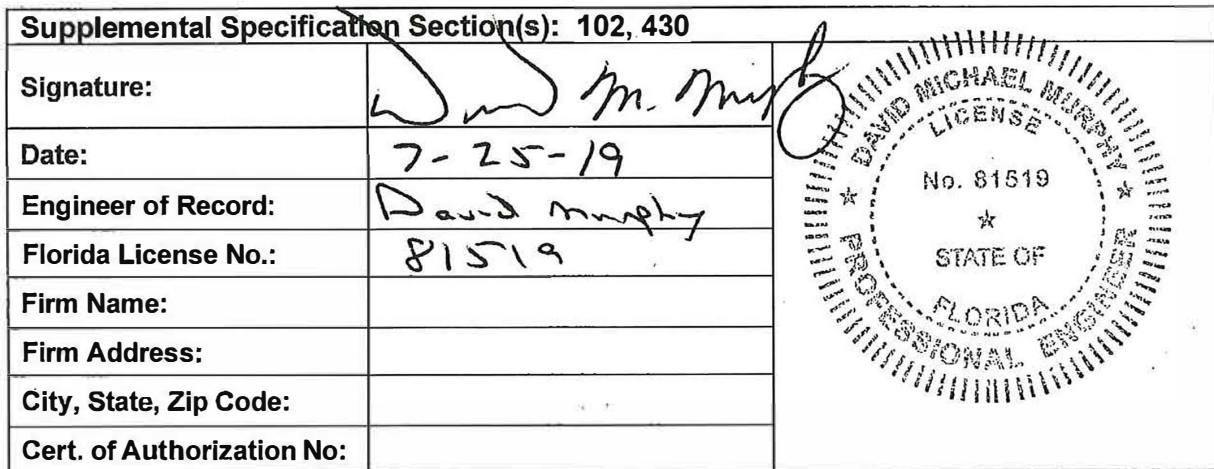 Supplemental Specification Section(s): 102, 430
Signature: David M. Murphy
Date: 7-25-19
Engineer of Record: David Murphy
Florida License No.: 81519
Firm Name:
Firm Address:
City, State, Zip Code:
Cert. of Authorization No:
DAVID MICHAEL MURPHY
LICENSE
No. 81519
STATE OF
FLORIDA
PROFESSIONAL ENGINEER